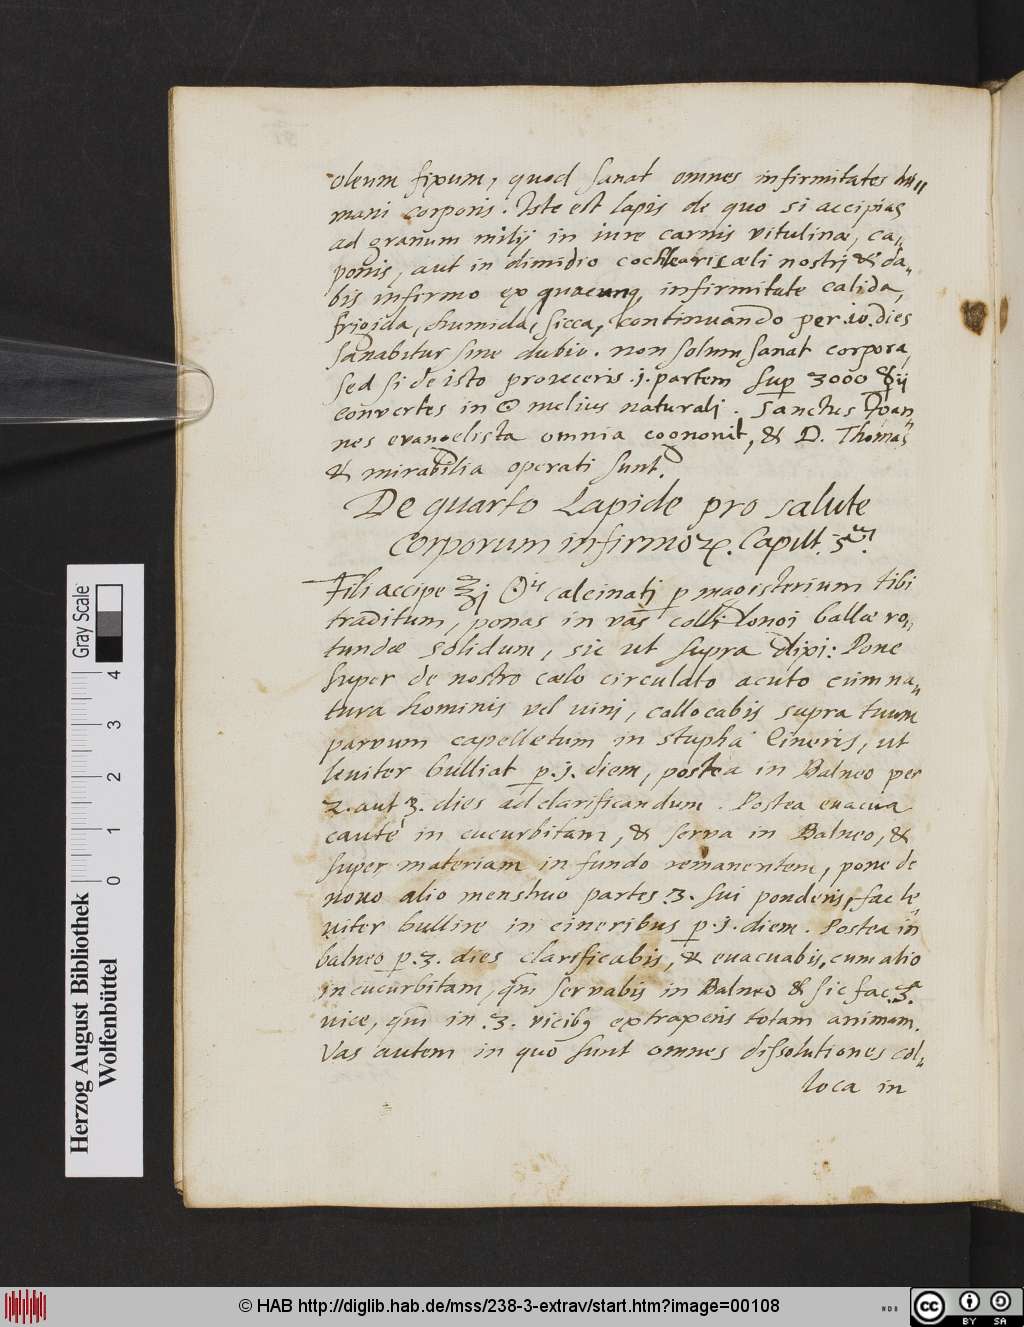 oleum fixum, quod sanat omnes infirmitates hu=
mani corporis. Iste est lapis de quo si accipias
ad granum milij in iure carnis vitulinæ, ca=
ponis, aut in dimidio cochlearis cæli nostri & da=
bis infirmo ex quacunq, infirmitate calida,
frigida, humida, sicca, continuando per .10. dies
sanabitur sine dubio. non solum sanat corpora,
sed si de isto proieceris .j. partem sup 3000 ☿ij
convertes in ☉ melius naturali. Sanctus Joan=
nes evangelista omnia cognovit, & D. Thomas
& mirabilia operati sunt.
De quarto Lapide pro salute
corporum infirmoꝝ. Capitt. 5ᵘᵐ.
Fili accipe ℥j ☉is calcinati p magisterium tibi
traditum, ponas in vas colli longi ballæ ro=
tundæ solidum, sic ut supra dixi: Pone
super de nostro cælo circulato acuto cum na=
tura hominis vel vini, collocabis supra tuum
parvum capelletum in stupha Cineris, ut
leviter bulliat p .j. diem, postea in Balneo per
2. aut 3. dies ad clarificandum. Postea evacua
caute in cucurbitam, & serva in Balneo, &
super materiam in fundo remanentem, pone de
novo alio menstruo partes 3. sui ponderis, fac le=
viter bullire in cineribus p .j. diem. Postea in
balneo p .3. dies clarificabis, & evacuabis, cum alio
in cucurbitam, qm servabis in Balneo & sic fac .3ª.
vice, qm in .3. vicibꝰ extraxeris totam animam.
Vas autem in quo sunt omnes dissolutiones col=
loca in
Herzog August Bibliothek
Wolfenbüttel
0 1 2 3 4
Gray Scale
© HAB http://diglib.hab.de/mss/238-3-extrav/start.htm?image=00108
cc BY SA